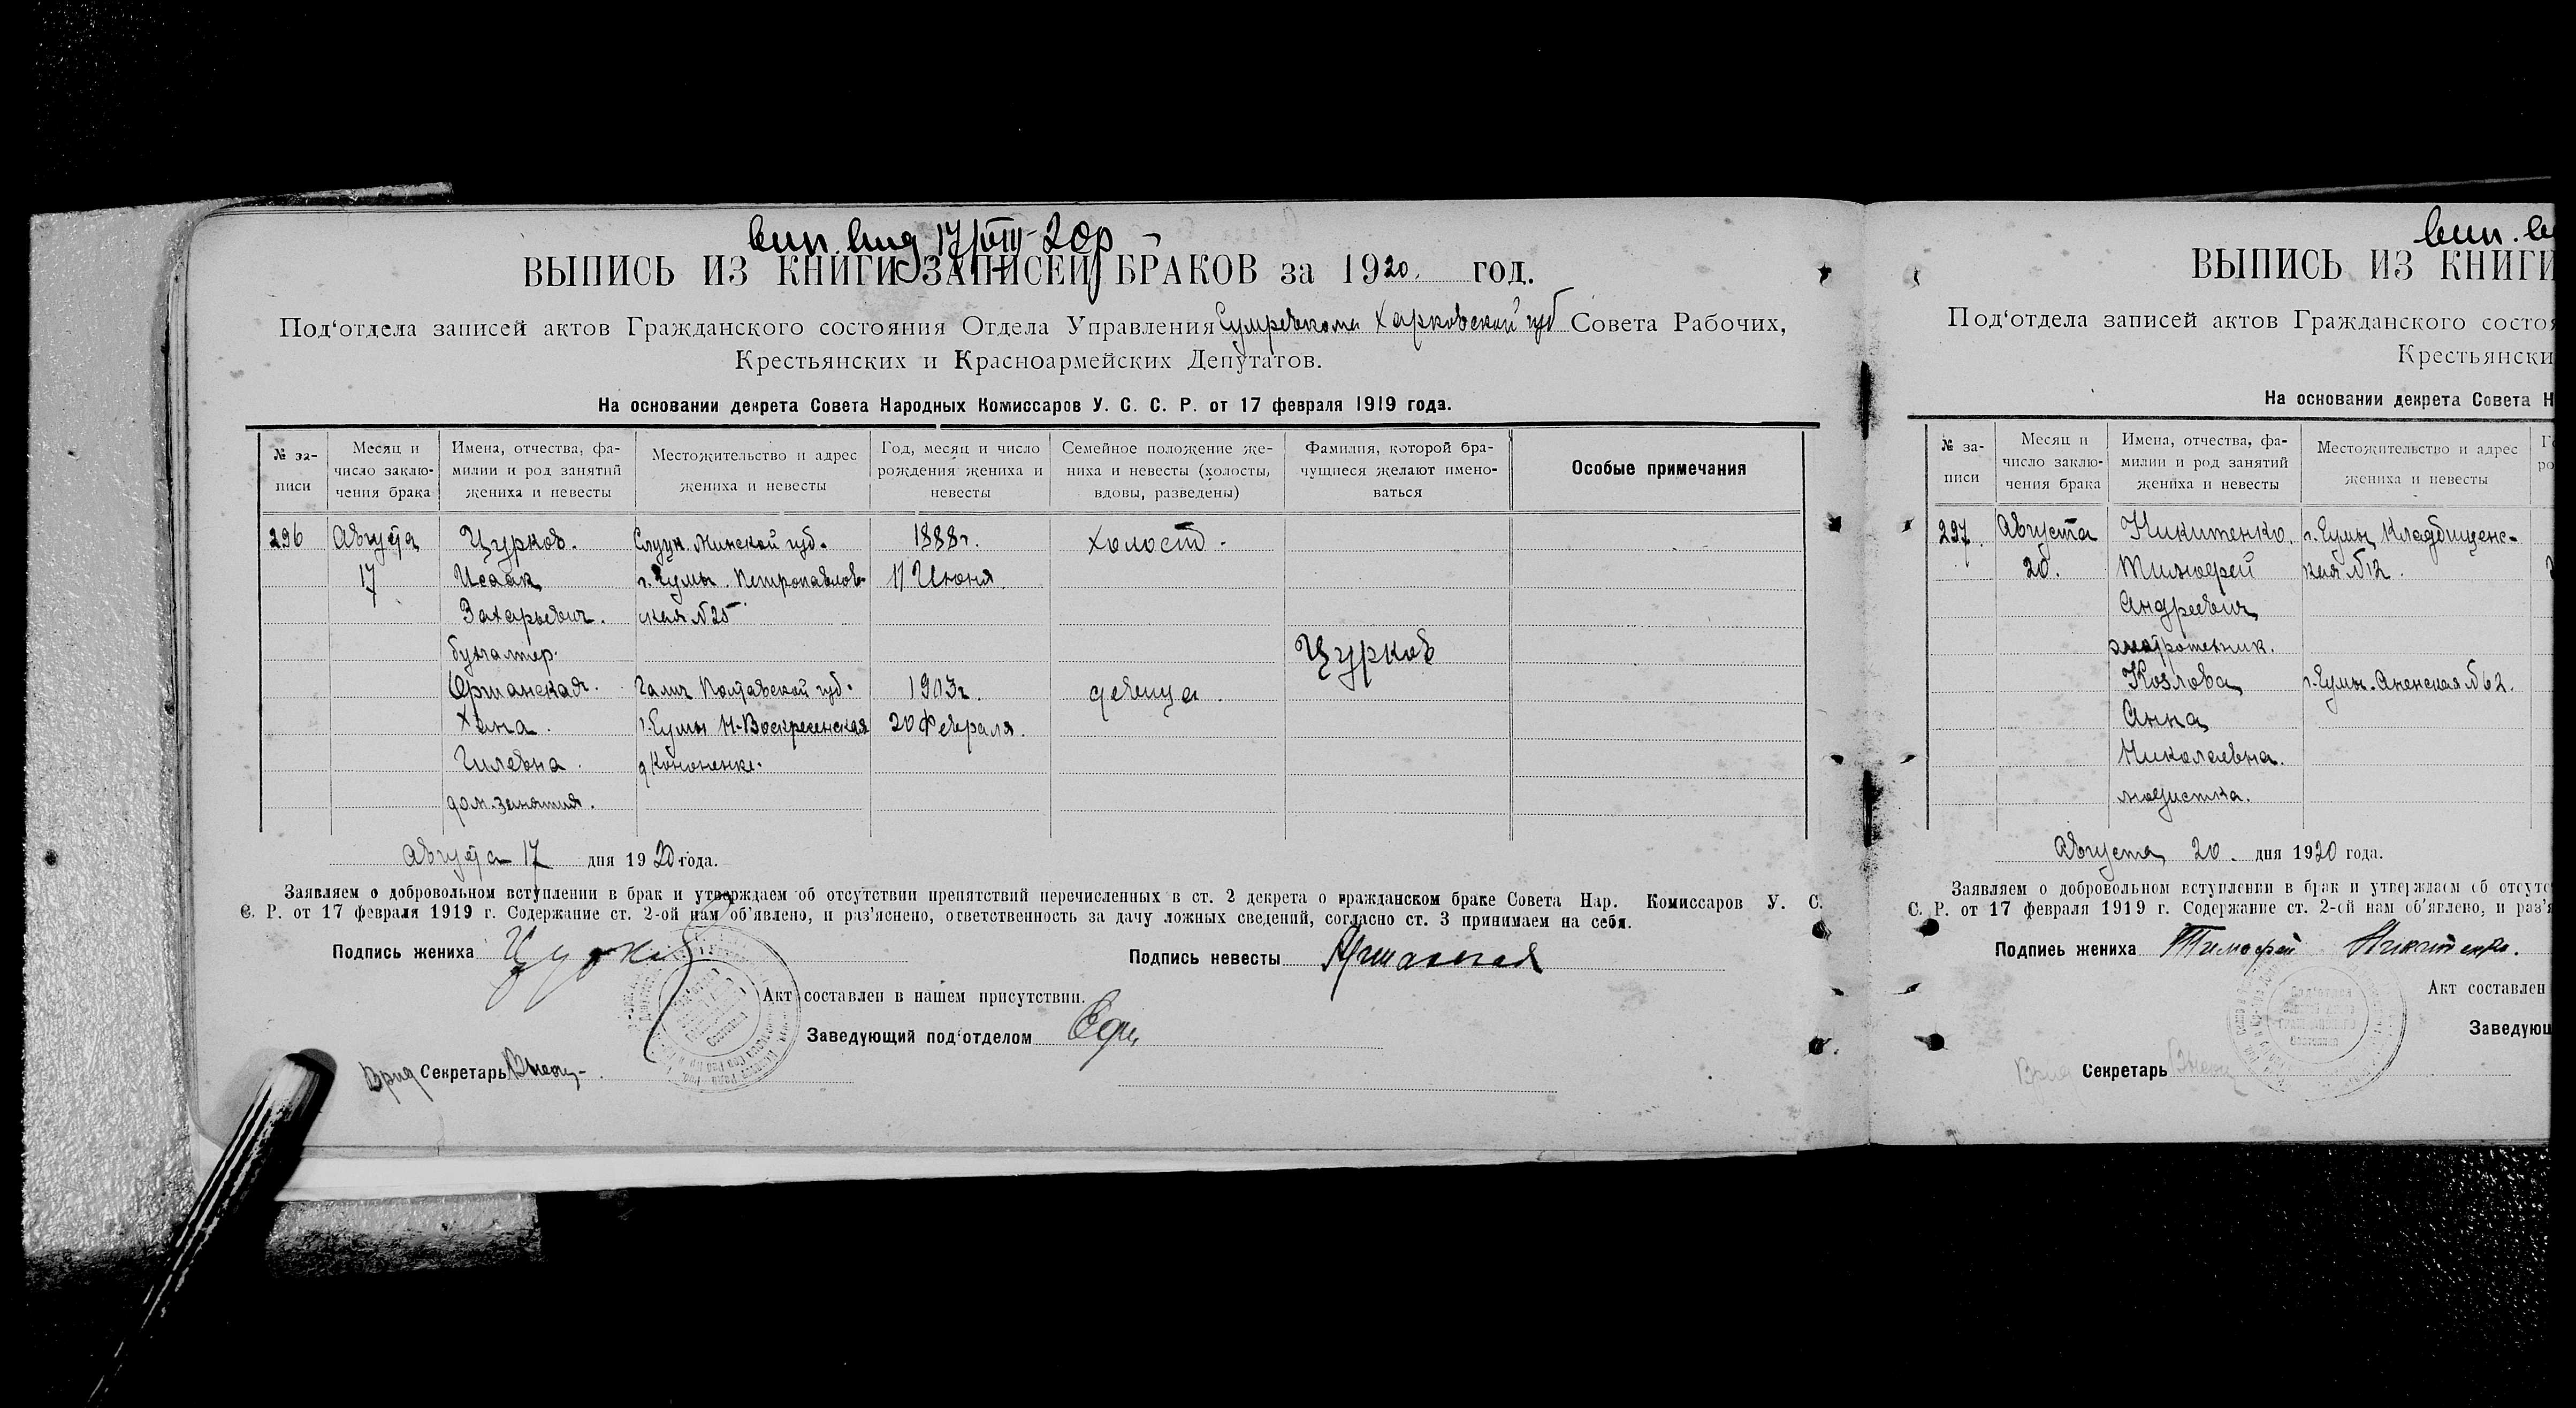 вип. вид 17/VIII-20р
ВЫПИСЬ ИЗ КНИГИ ЗАПИСЕЙ БРАКОВ за 1920. год.
Под'отдела записей актов Гражданского состояния Отдела Управления Сумревкома Харковской губ Совета Рабочих,
Крестьянских и Красноармейских Депутатов.
На основании декрета Совета Народных Комиссаров У. С. С. Р. от 17 февраля 1919 года.
№ за-
писи
Месяц и
число заклю-
чения брака
Имена, отчества, фа-
милии и род занятий
жениха и невесты
Местожительство и адрес
жениха и невесты
Год, месяц и число
рождения жениха и
невесты
Семейное положение же-
ниха и невесты (холосты,
вдовы, разведены)
Фамилия, которой бра-
чущиеся желают имено-
ваться
Особые примечания
296
Августа
17
Цурков.
Исаак
Захарьевич.
бухгалтер.
Слуцк. Минской губ.
г. Сумы. Петропавлов-
ская №25
1888г.
17 Июня
холост.
Цурков
Оршанская.
Хана.
Гилевна.
дом. занятия.
Гадяч Полтавской губ.
г. Сумы Н-Воскресенская
д Кононенко.
1903г.
20 Февраля.
девица.
Августа 17 дня 1920 года.
Заявляем о добровольном вступлении в брак и утверждаем об отсутствии препятствий перечисленных в ст. 2 декрета о гражданском браке Совета Нар. Комиссаров У. С.
С. Р. от 17 февраля 1919 г. Содержание ст. 2-ой нам об'явлено, и раз'яснено, ответственность за дачу ложных сведений, согласно ст. 3 принимаем на себя.
Подпись жениха Цурков
Подпись невесты Аршанская
Акт составлен в нашем присутствии.
Заведующий под'отделом
Врид Секретарь
вип.
ВЫПИСЬ ИЗ КНИГИ
Под'отдела записей актов Гражданского состоя
Крестьянски
На основании декрета Совета Н
№ за-
писи
Месяц и
число заклю-
чения брака
Имена, отчества, фа-
милии и род занятий
жениха и невесты
Местожительство и адрес
жениха и невесты
297.
Августа
20.
Никитенко.
Тимофей
Андреевич
электротехник.
г. Сумы, Кладбищенс-
кая №12.
Козлова
Анна
Николаевна.
модистка.
г. Сумы. Аненская №62.
Августа 20. дня 1920 года.
Заявляем о добровольном вступлении в брак и утверждаем об отсутс
С. Р. от 17 февраля 1919 г. Содержание ст. 2-ой нам об'явлено, и раз'я
Подпись жениха Тимофей Никитенко.
Акт составлен
Заведующ
Врид Секретарь